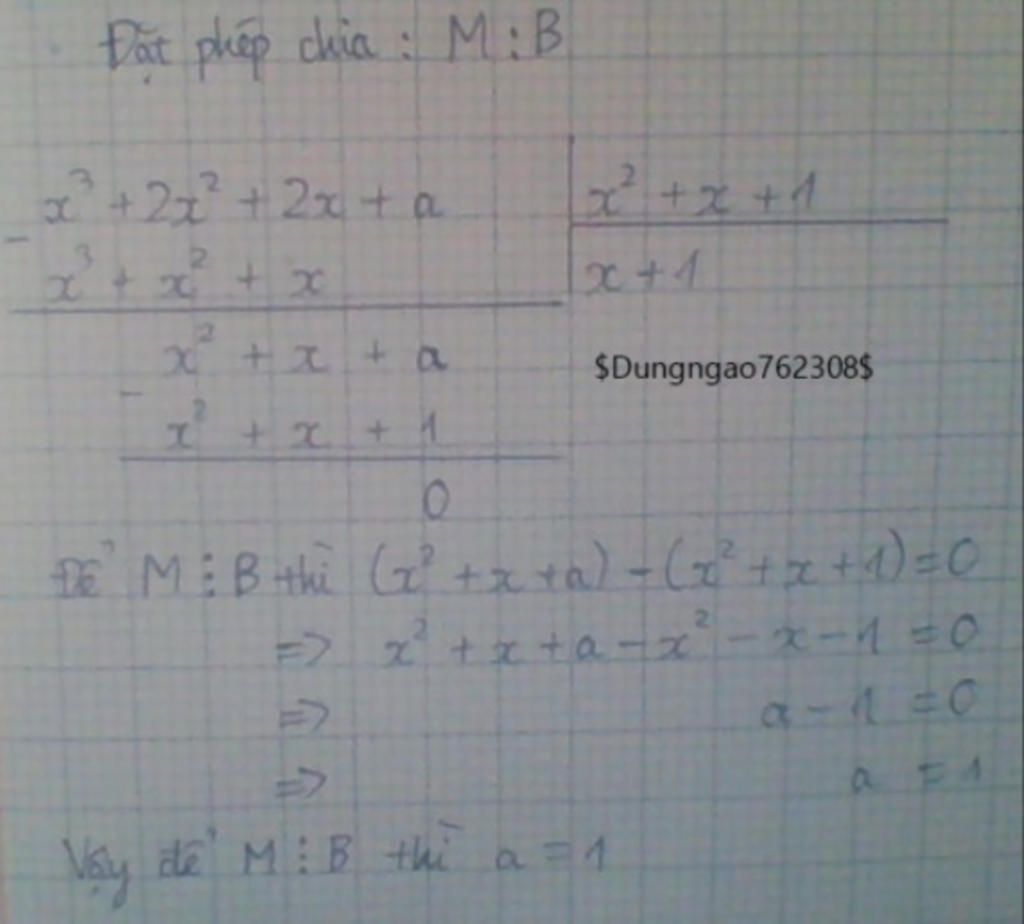 Đặt phép chia : M : B
x³ + 2x² + 2x + a
x² + x + 1
-
x³ + x² + x
x + 1
x² + x + a
$Dungngao762308$
-
x² + x + 1
0
Để M ⋮ B thì (x² + x + a) - (x² + x + 1) = 0
=> x² + x + a - x² - x - 1 = 0
=> a - 1 = 0
=> a = 1
Vậy để M ⋮ B thì a = 1